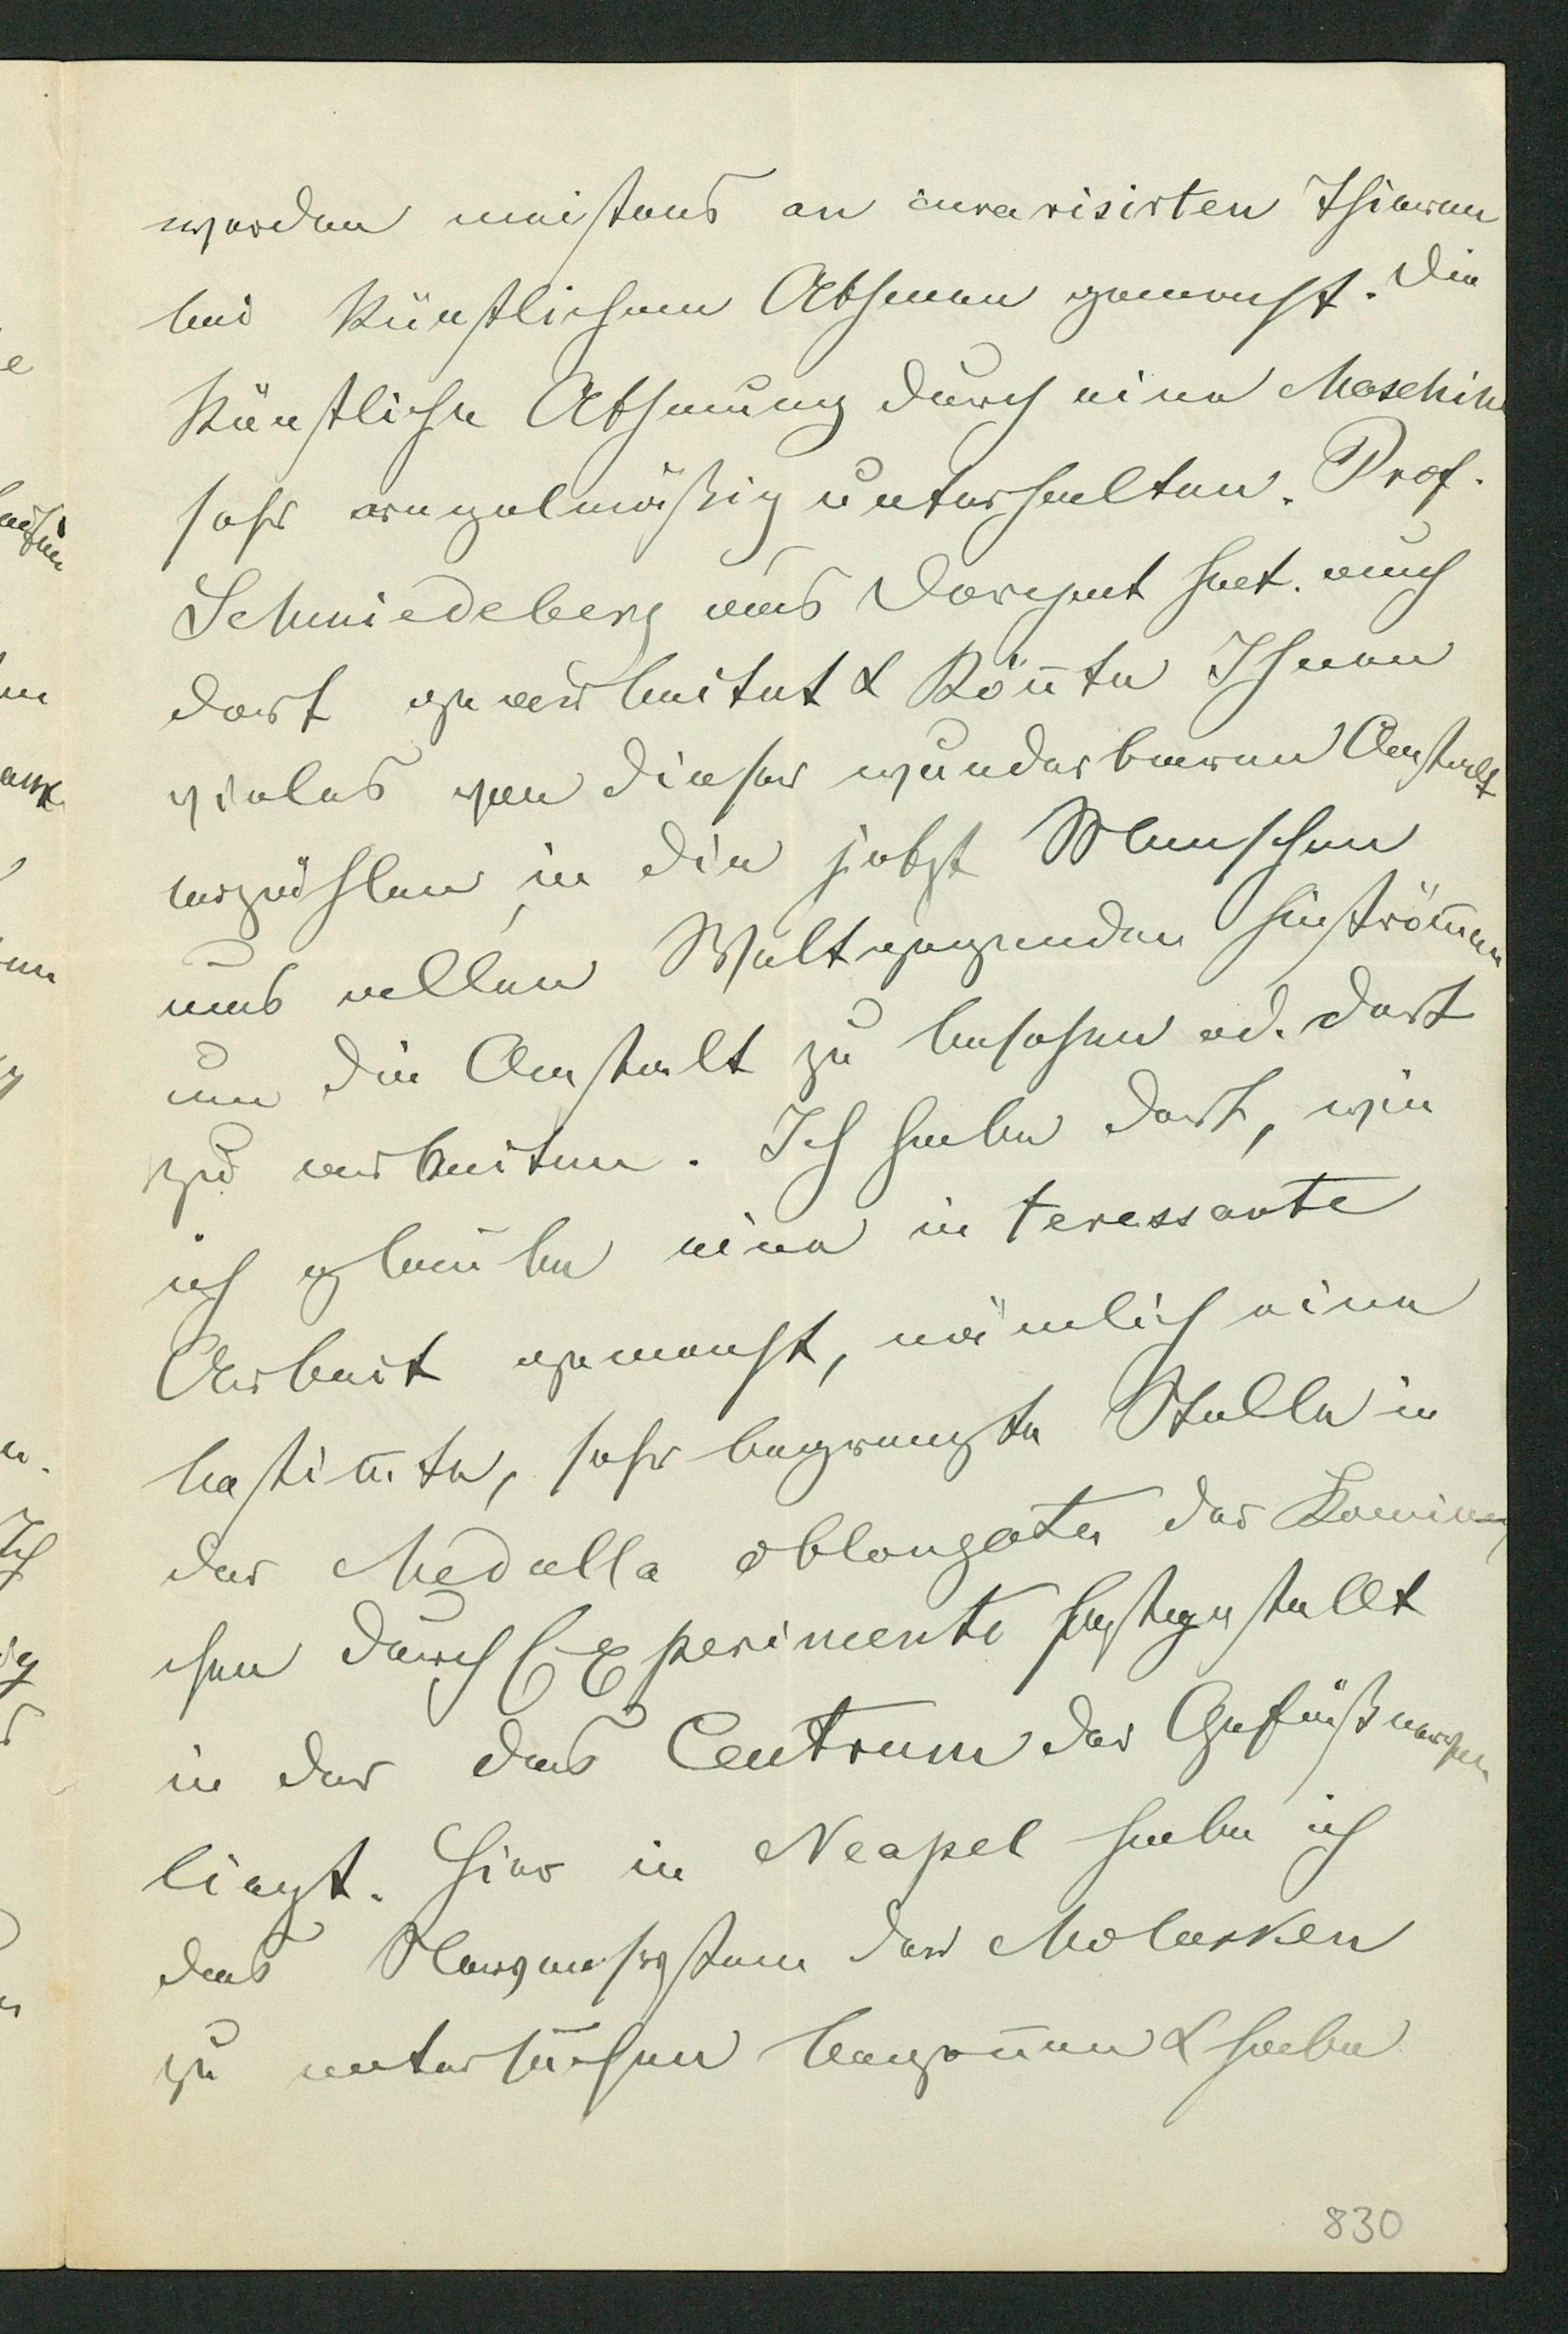 werden meistens an curarisirten Thieren
bei künstlichem Athmen gemacht. Die
künstliche Athmung durch eine Maschine
sehr regelmäßig unterhalten. Prof.
Schmiedeberg aus Dorpat hat auch
dort gearbeitet & kön̄te Ihnen
vieles von dieser wunderbaren Anstalt
erzählen, in die jetzt Menschen
aus allen Weltgegenden hinström̄en
um die Anstalt zu besehen od. dort
zu arbeiten. Ich habe dort, wie
ich glaube eine interessante
Arbeit gemacht, nämlich eine
bestim̄te, sehr begrenzte Stelle in
der Medulla oblongata des Kanin-
chen durch Experimente festgestellt
in der das Centrum der Gefäßnerven
liegt. Hier in Neapel habe ich
das Nervensystem der Molusken
zu untersuchen begon̄en & habe
830